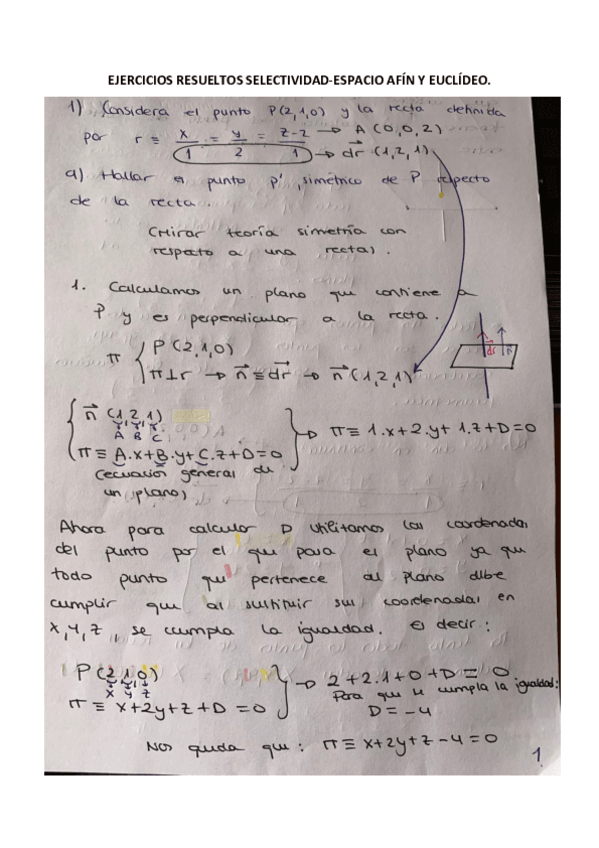 EJERCICIOS RESUELTOS SELECTIVIDAD-ESPACIO AFÍN Y EUCLÍDEO.
1) Considera el punto P(2,1,0) y la recta definida
por r ≡ x/1 = y/2 = z-2/1 → A (0,0,2)
→ dr (1,2,1)
a) Hallar el punto P', simétrico de P respecto
de la recta.
(Mirar teoría simetría con
respecto a una recta).
1. Calculamos un plano que contiene a
P y es perpendicular a la recta.
π { P(2,1,0)
π ⊥ r → n ≡ dr → n (1,2,1)
dr n
n (1,2,1)
A B C
π ≡ A.x+B.y+C.z+D=0 } → π ≡ 1.x+2.y+1.z+D=0
(ecuación general de
un plano)
Ahora para calcular D utilizamos las coordenadas
del punto por el que pasa el plano ya que
todo punto que pertenece al plano debe
cumplir que al sustituir sus coordenadas en
x,y,z, se cumpla la igualdad. Es decir:
P(2,1,0)
x y z
π ≡ x+2y+z+D=0 } → 2+2.1+0+D=0
Para que se cumpla la igualdad:
D=-4
Nos queda que: π ≡ x+2y+z-4=0
1